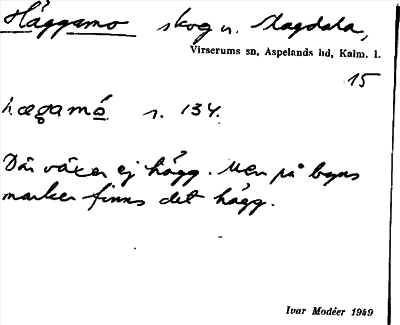 Häggamo skog u. Magdala,
Virserums sn, Aspelands hd, Kalm. l.
15
hægamó s. 134.
Där växer ej hägg. Men på byns
marker finns det hägg.
Ivar Modéer 1949